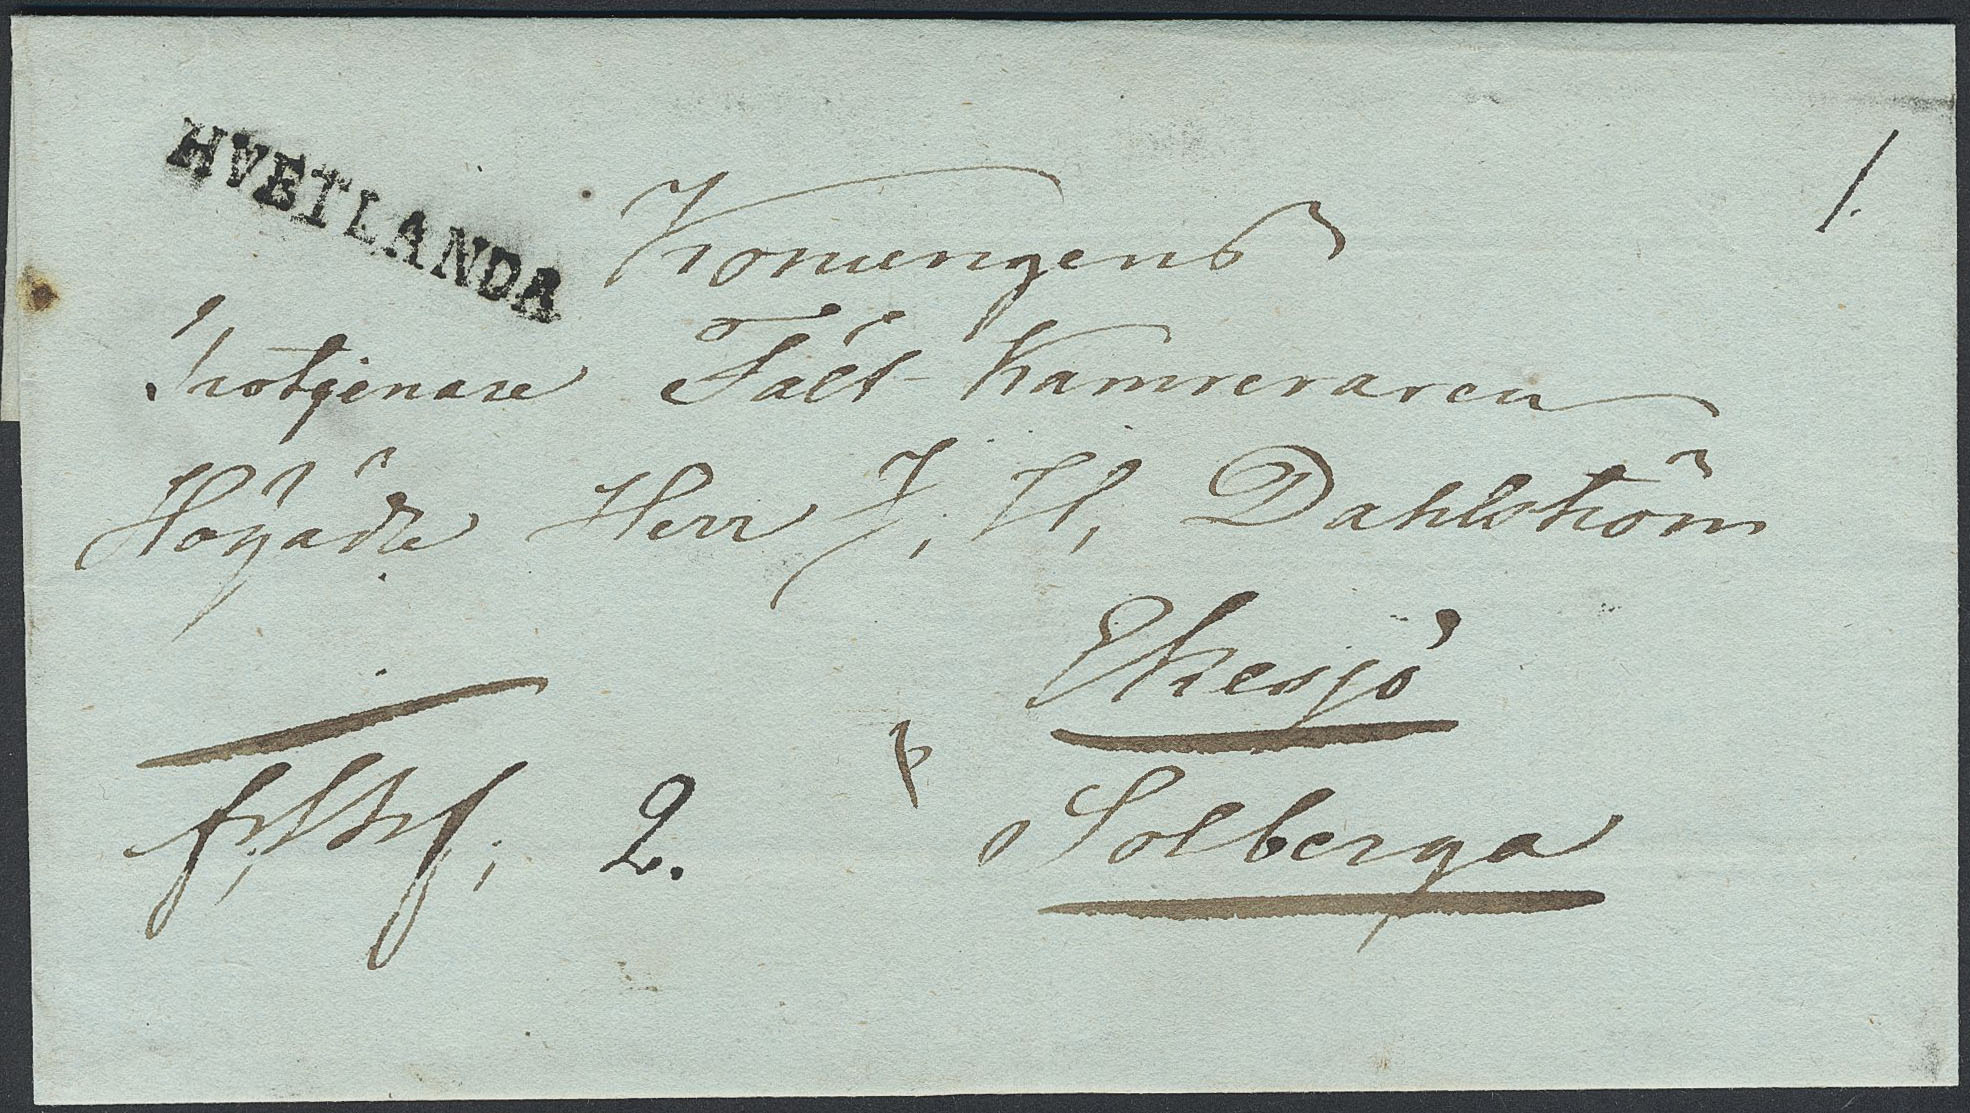 HVETLANDA
1.
Konungens
Trotjenare Fält-Kamreraren
Högädle Herr J. H. Dahlström
Ekesjö
p
2. Solberga